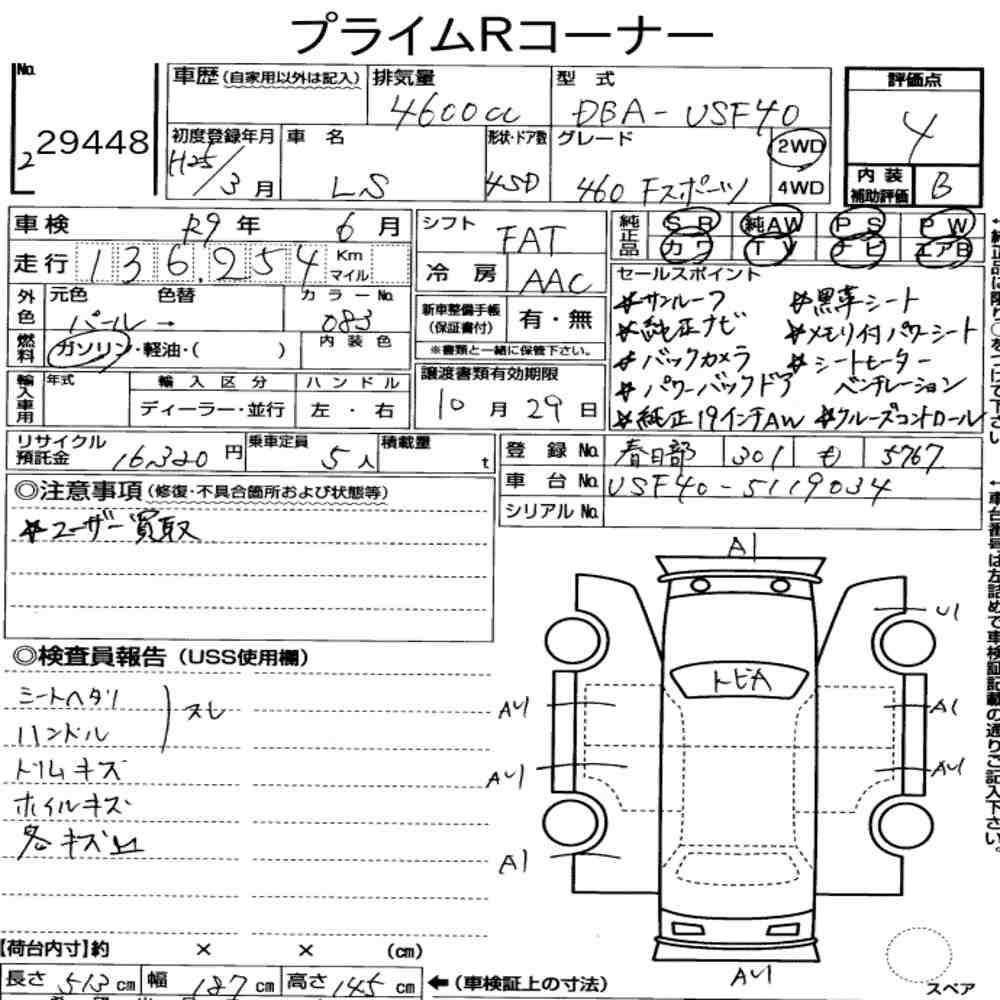 プライムRコーナー
No. 2 29448
車歴 (自家用以外は記入)
排気量 4600cc
型式 DBA-USF40
評価点 4
初度登録年月 H25/3月
車名 LS
形状・ドア数 4SD
グレード 460 Fスポーツ
2WD
4WD
内装補助評価 B
車検 R9年 6月
走行 136,254 Km マイル
シフト FAT
冷房 AAC
純正品 SR 純AW PS PW
カワ TV ナビ エアB
外色 元色 パール → 色替 カラーNo. 083
燃料 ガソリン・軽油・( ) 内装色
新車整備手帳 (保証書付) 有・無
※書類と一緒に保管下さい。
セールスポイント
*サンルーフ *黒革シート
*純正ナビ *メモリ付パワーシート
*バックカメラ *シートヒーター
*パワーバックドア ベンチレーション
*純正19インチAW *クルーズコントロール
輸入車用 年式 輸入区分 ハンドル
ディーラー・並行 左・右
譲渡書類有効期限
10月29日
リサイクル預託金 16320円
乗車定員 5人
積載量 t
登録No. 春日部 301 も 5767
車台No. USF40-5119034
シリアルNo.
◎注意事項 (修復・不具合箇所および状態等)
*ユーザー買取
◎検査員報告 (USS使用欄)
シートヘタリ
ハンドル
スレ
トリムキズ
ホイルキズ
各キズ凹
A1
U1
トビA
AU1
A1
AU1
AU1
A1
AU1
スペア
【荷台内寸】約 × × (cm)
長さ 513cm 幅 187cm 高さ 145cm
←(車検証上の寸法)
←車台番号は左詰めで車検証記載の通りご記入下さい。